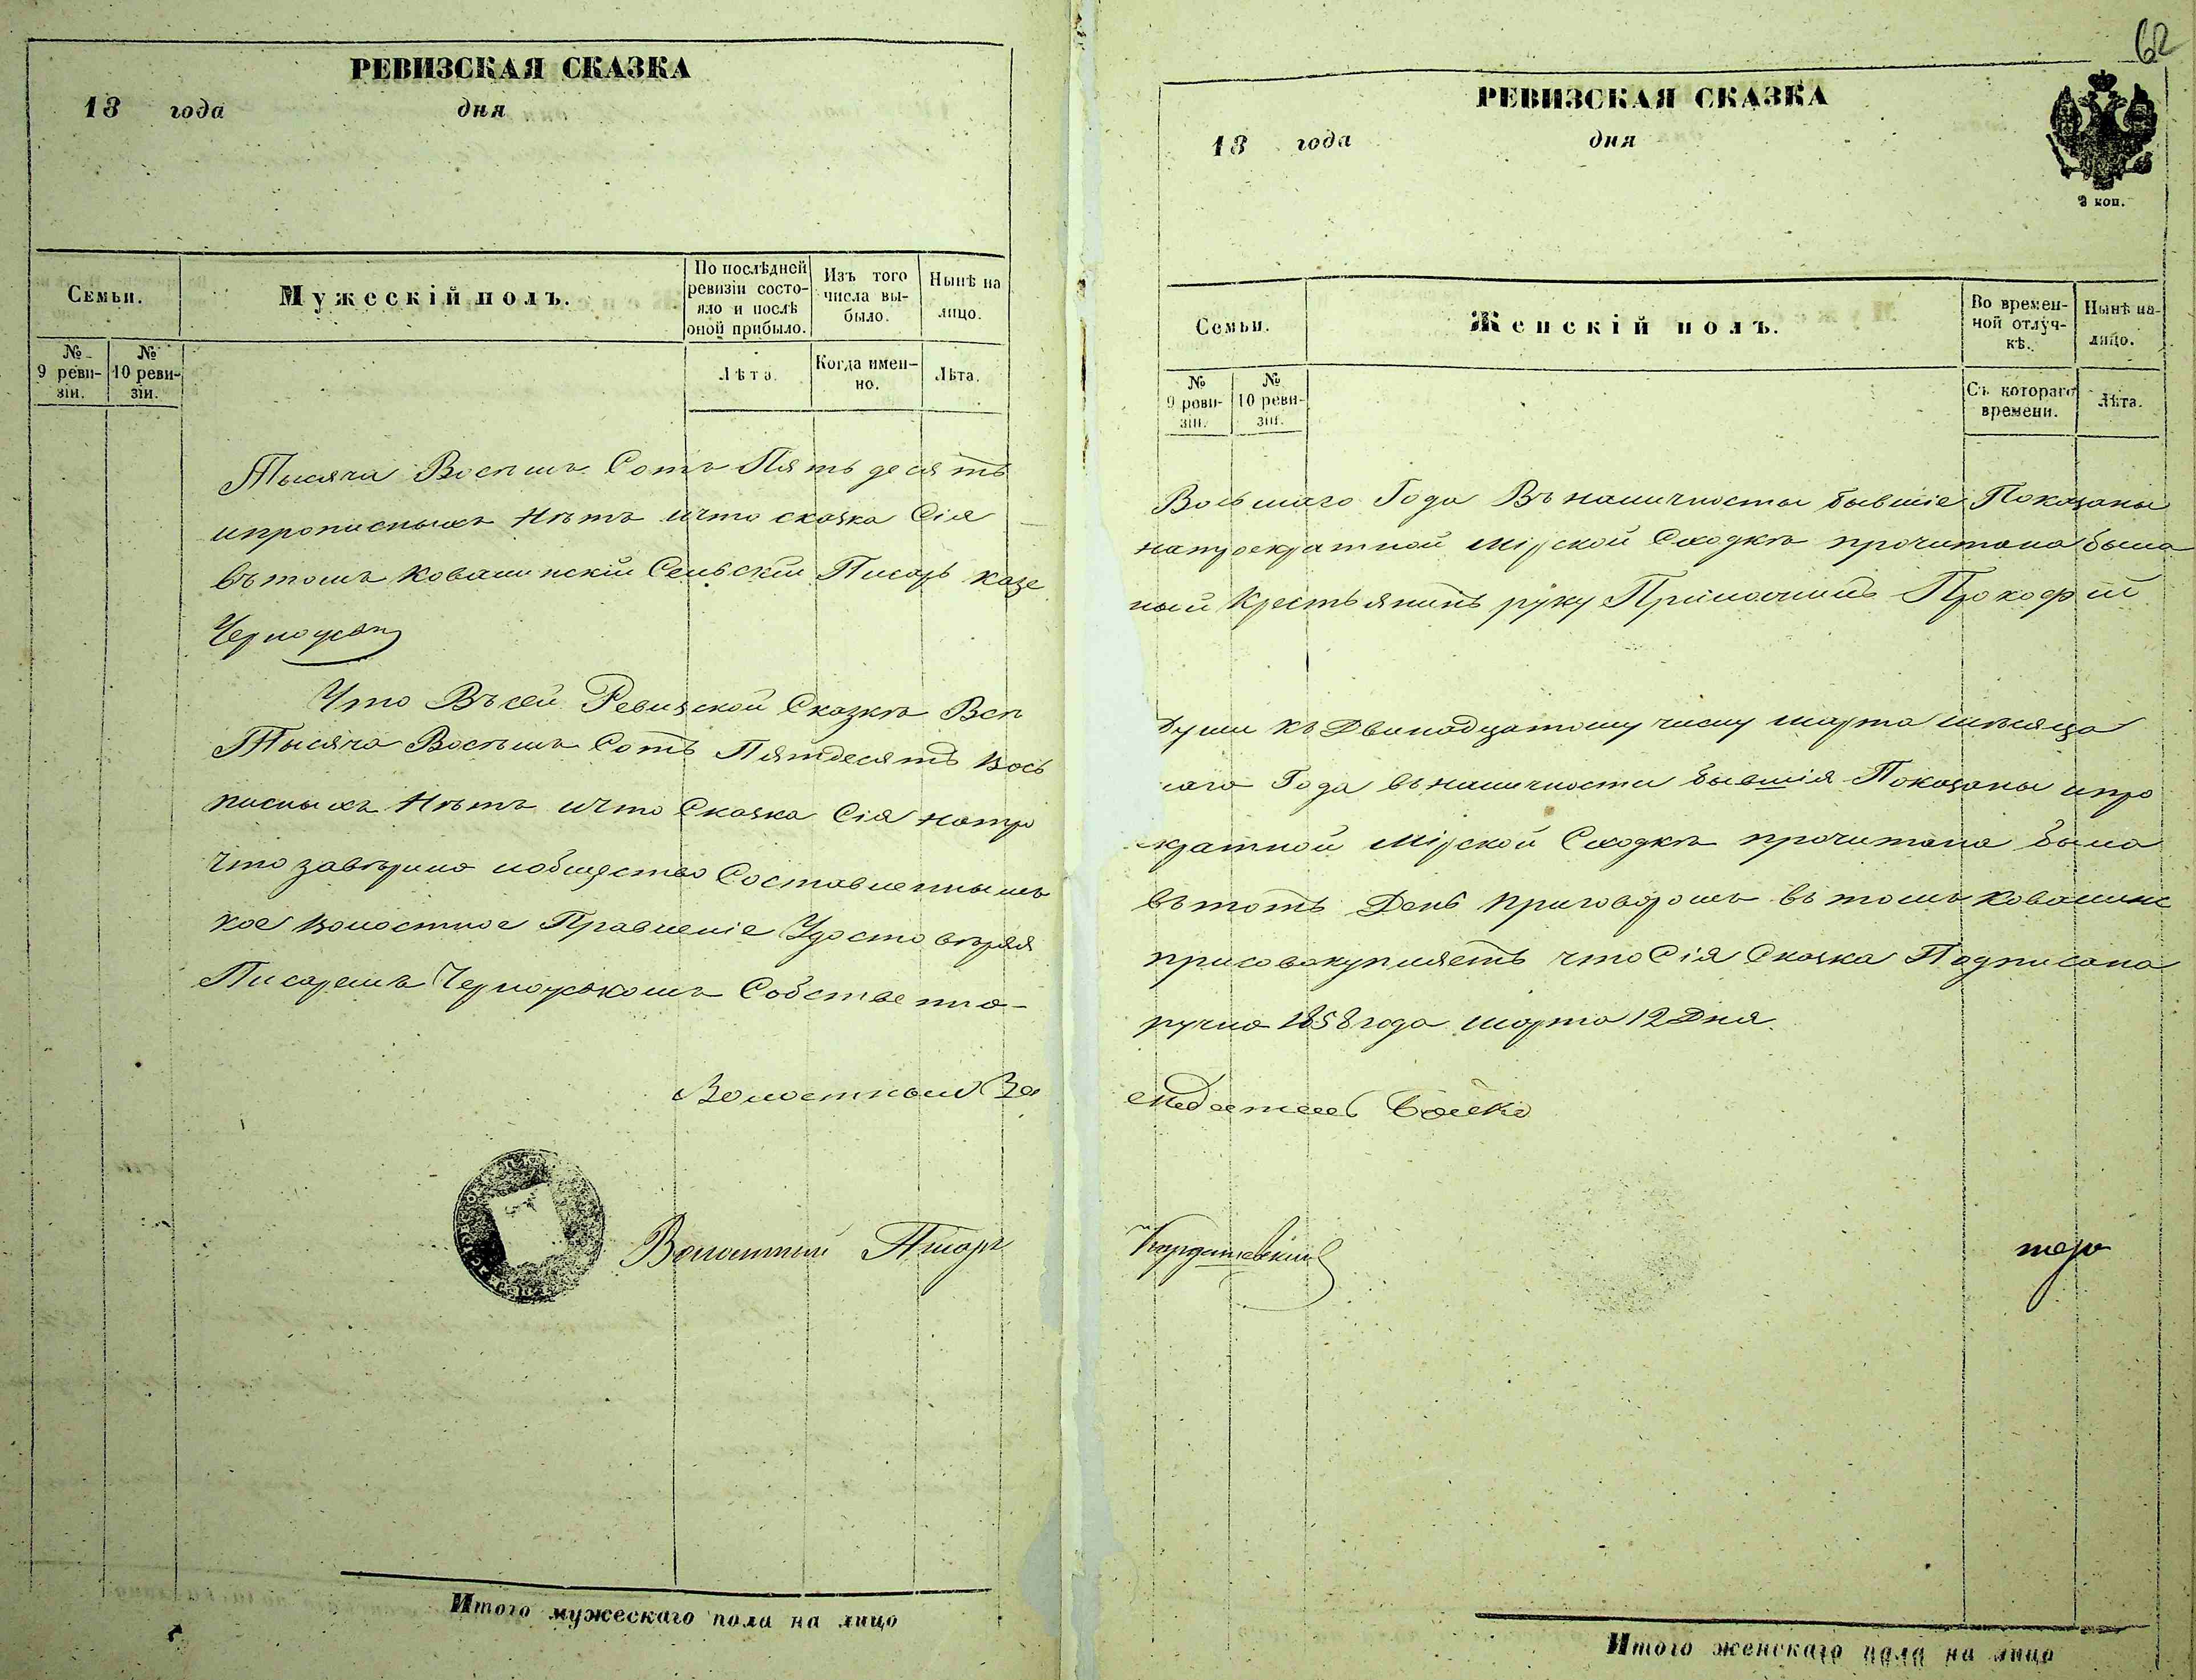 РЕВИЗСКАЯ СКАЗКА
18 года дня
Семьи.
Мужескій полъ.
По послѣдней ревизіи состояло и послѣ оной прибыло.
Изъ того числа выбыло.
Нынѣ на лицо.
№ 9 ревизіи.
№ 10 ревизіи.
Лѣта.
Когда именно.
Лѣта.
Тысяча Восемъ Сотъ Пять десятъ
ипрописныхъ Нѣтъ ичто сказка Сія
въ томъ Ковалинскій Сельскій Писарь казе
Что Въ сей Ревизской Сказкѣ Всѣ
Тысяча Восемъ Сотъ Пятдесятъ Вось
писныхъ Нѣтъ ичто Сказка Сія натро
что завѣрино иобщество Составленнымъ
кое Волостное Правленіе Удостовѣряя
Писаремъ Собственно-
Волостный
Волостный Писарь
Итого мужескаго пола на лицо
62
РЕВИЗСКАЯ СКАЗКА
18 года дня
3 коп.
Семьи.
Женскій полъ.
Во временной отлучкѣ.
Нынѣ на-лицо.
№ 9 ревизіи.
№ 10 ревизіи.
Съ котораго времени.
Лѣта.
Восьмаго Года Въ наличности бывшіе Показаны
натроекратной Мірской Сходкѣ прочитана была
ный Крестьянинъ руку Приложилъ Прокофій
Души къ Двинадцатому числу марта мѣсяца
маго Года въ наличности бывшія Показаны ипро
кратной Мірской Сходкѣ прочитана была
въ тотъ День Приговоромъ въ томъ Ковалинс
присовокупляетъ что Сія Сказка Подписана
ручно 1858 года марта 12 Дня.
Бойко
Итого женскаго пола на лицо